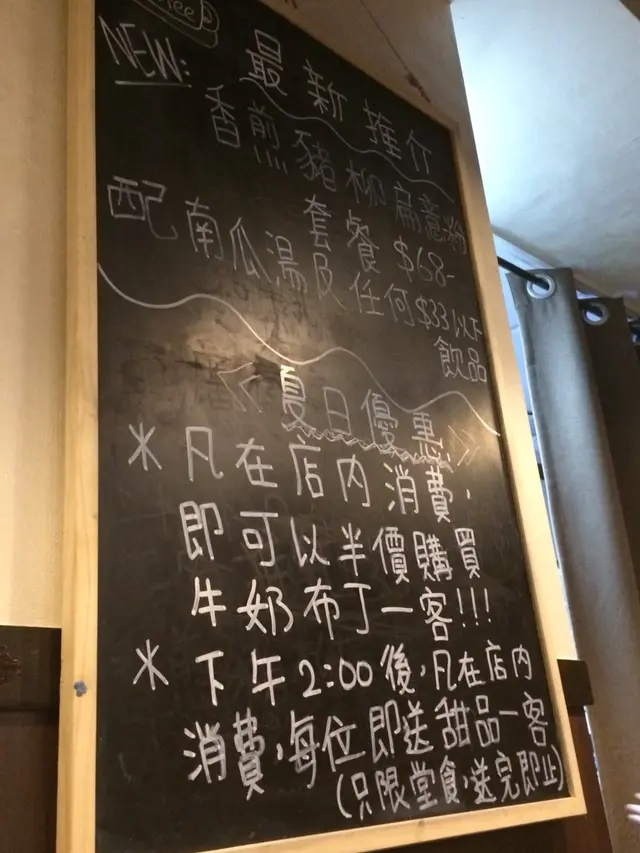 NEW: 最新推介
香煎豬柳扁意粉
套餐 $68-
配南瓜湯及任何$33以下
飲品
<<夏日優惠>>
*凡在店內消費,
即可以半價購買
牛奶布丁一客!!!
*下午2:00後,凡在店內
消費,每位即送甜品一客
(只限堂食,送完即止)